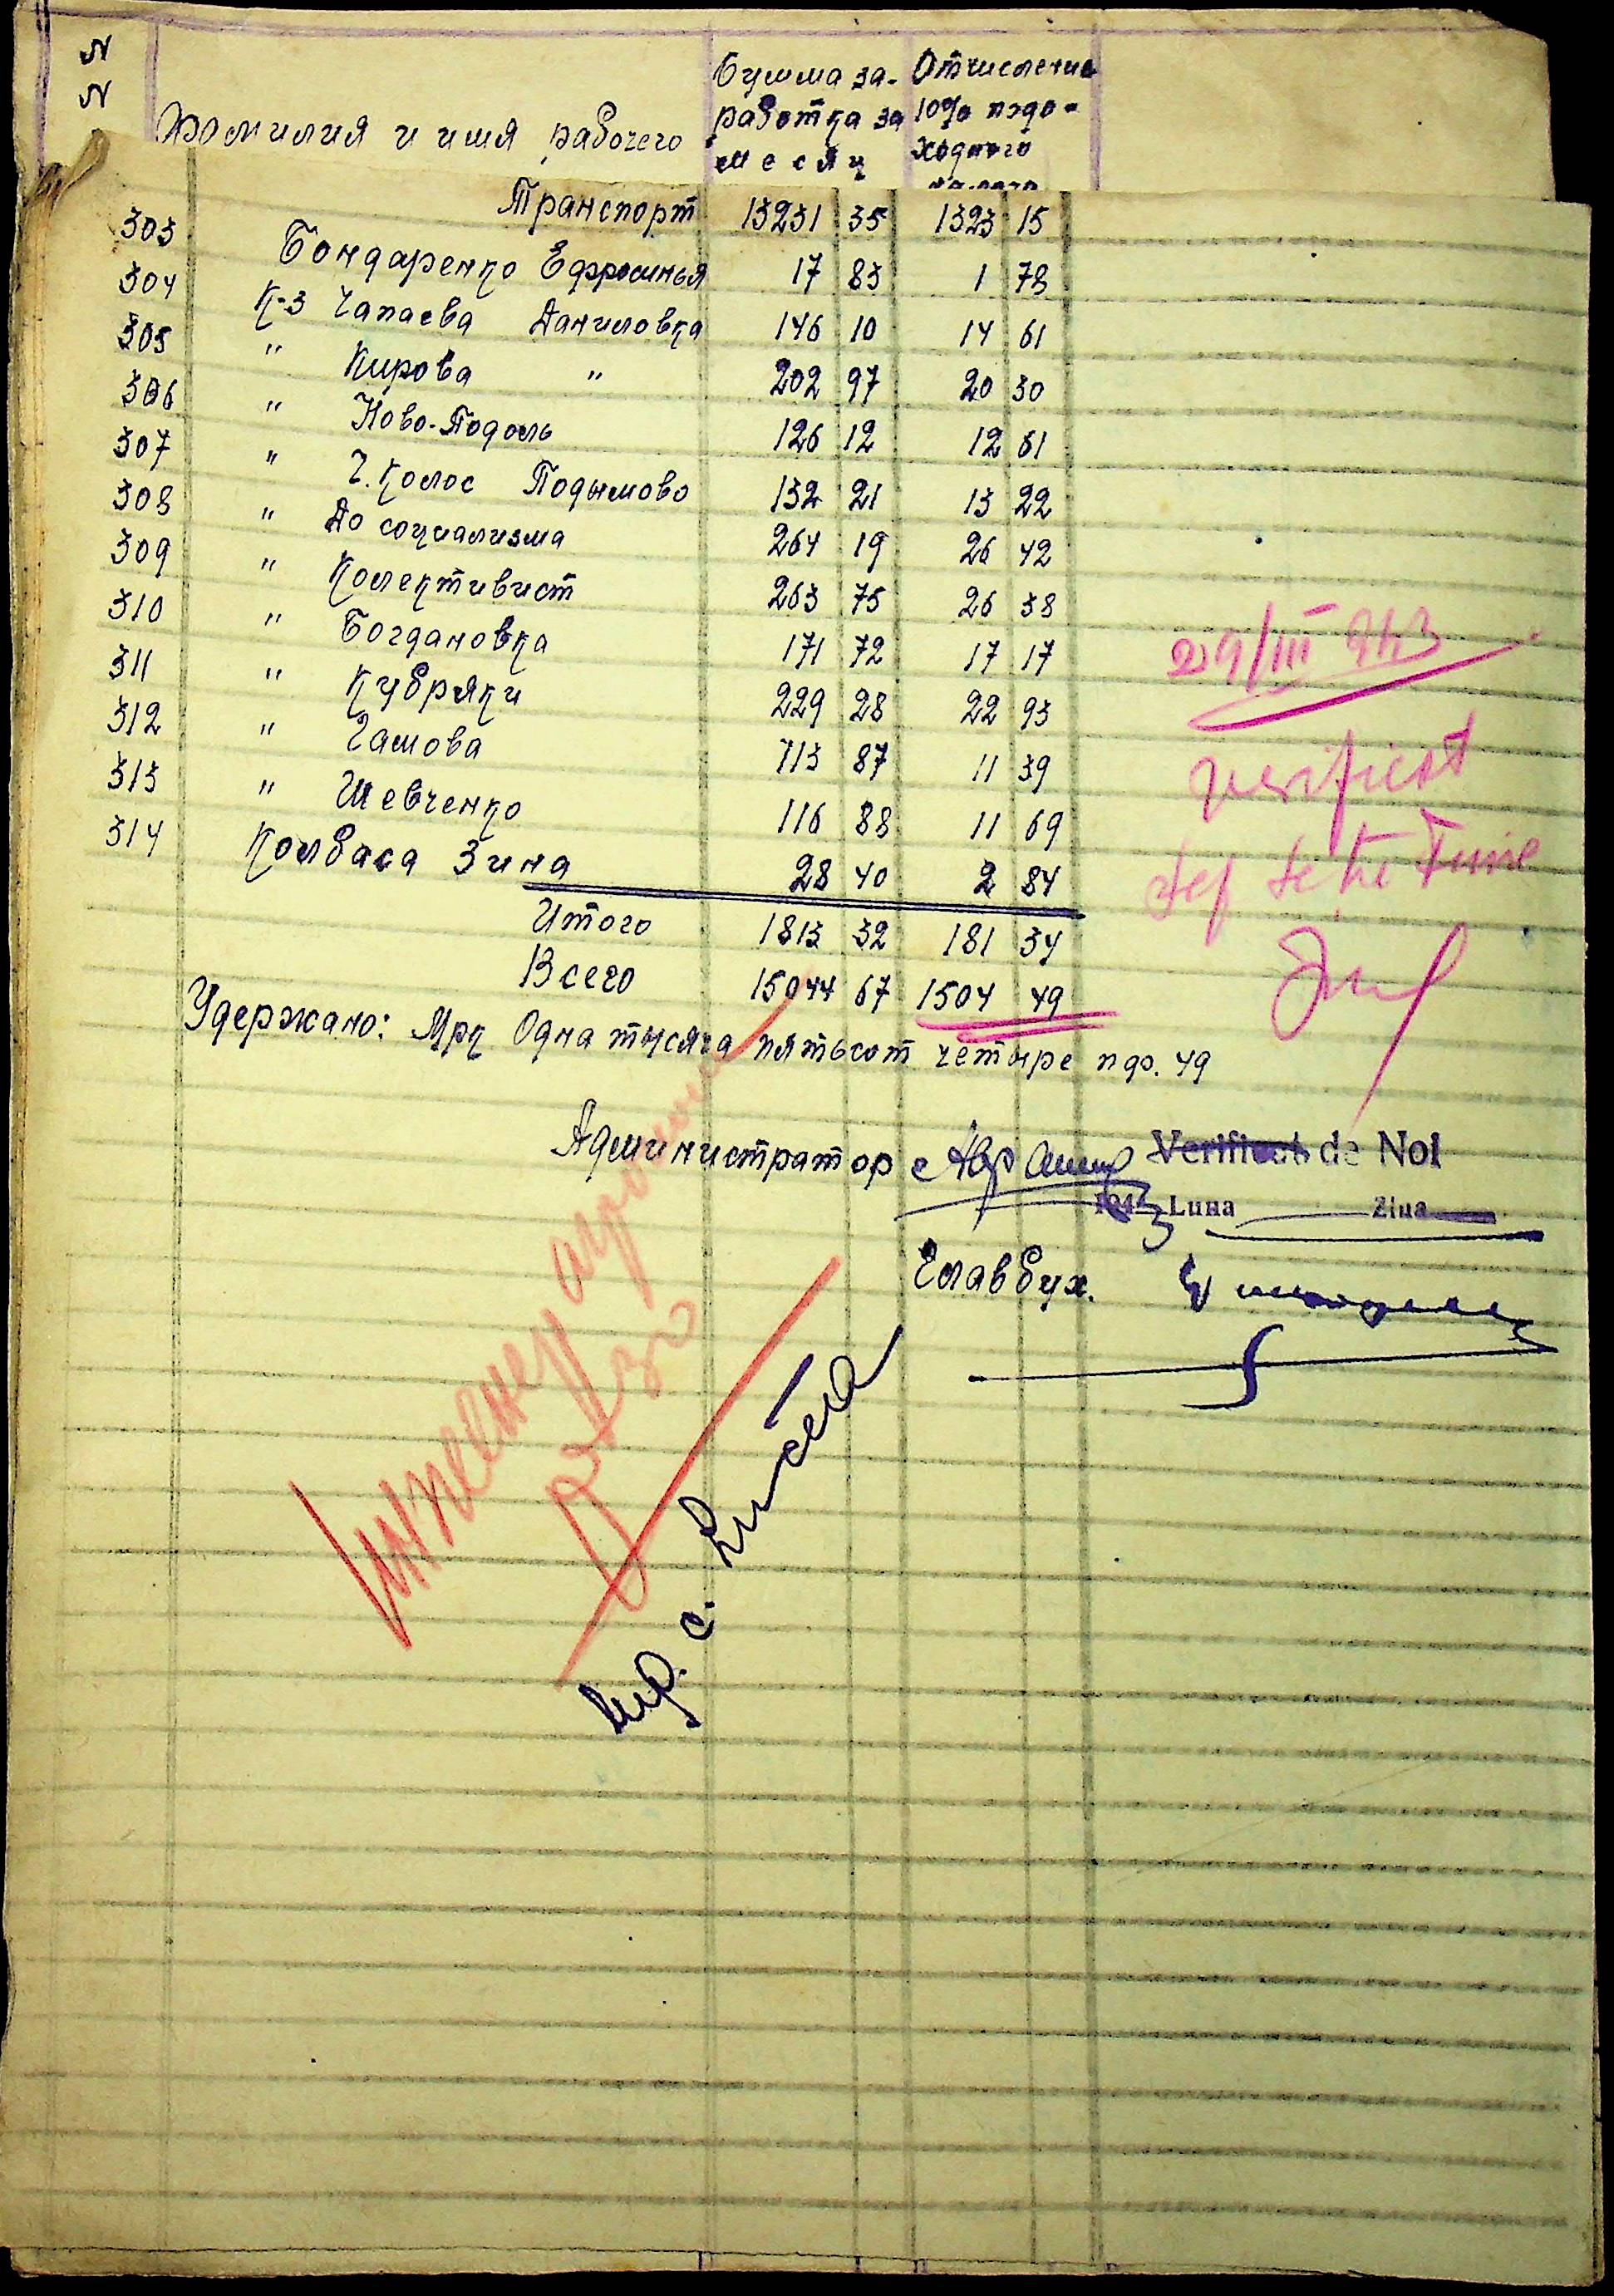 N
N
Фамилия и имя рабочего
Сумма за-
работка за
месяц
Отчисление
10% подо-
ходного
налога
Транспорт 13231 35 1323 15
303 Бондаренко Ефросинья 17 83 1 78
304 К-з Чапаева Даниловка 146 10 14 61
305 " Кирова " 202 97 20 30
306 " Ново-Подоль 126 12 12 61
307 " Ч. Колос Подымово 132 21 13 22
308 " До социализма 264 19 26 42
309 " Колективист 263 75 26 38
310 " Богдановка 171 72 17 17
311 " Кубряки 229 28 22 93
312 " Чамова 113 87 11 39
313 " Шевченко 116 88 11 69
314 Колбаса Зина 28 40 2 84
Итого 1813 32 181 34
Всего 15044 67 1504 49
Удержано: Мрк Одна тысяча пятьсот четыре пф. 49
29/III 943
verificat
Администратор
Verificat de Noi
194 3 Luna Ziua
Главбух.